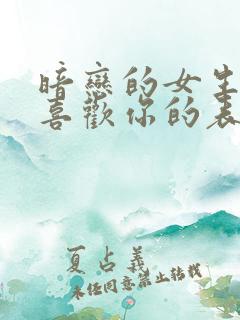 暗戀的女生
喜歡你的表
夏占義
未经同意禁止转载